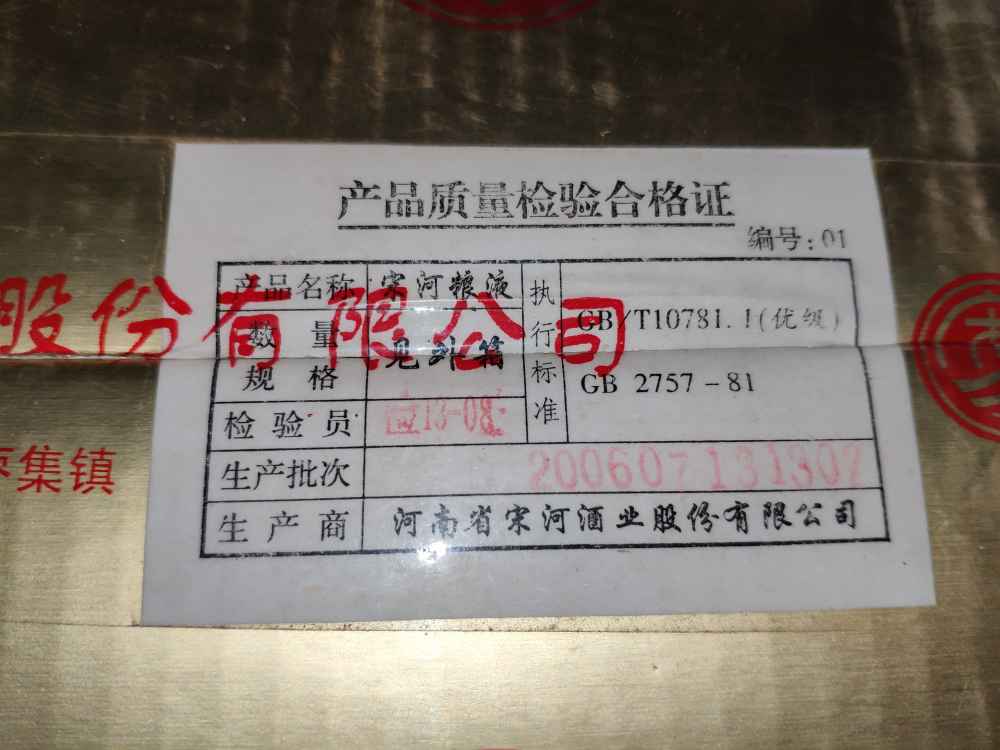 产品质量检验合格证
编号:01
产品名称 宋河粮液
数量
规格
见外箱
执行标准
GB/T10781.1(优级)
GB 2757-81
股份有限公司
检验员 检13-08
生产批次 20060713130
集镇
生产商 河南省宋河酒业股份有限公司